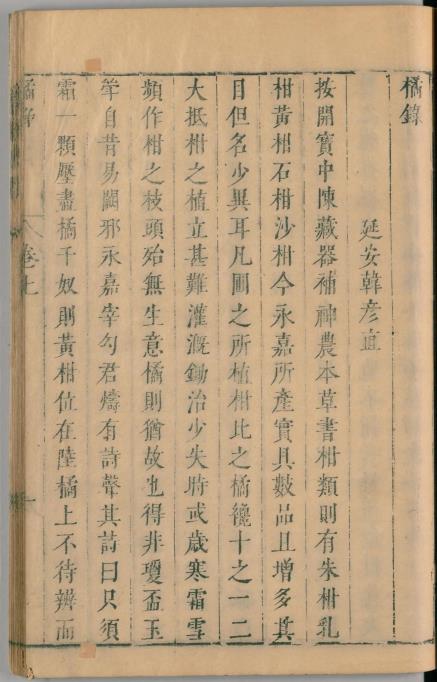 橘錄
延安韓彦直
按開寶中陳藏器補神農本草書柑類則有朱柑乳
柑黃柑石柑沙柑今永嘉所產實具數品且增多其
目但名少異耳凡圃之所植柑比之橘纔十之一二
大抵柑之植立甚難灌溉鋤治少失時或歲寒霜雪
頻作柑之枝頭殆無生意橘則猶故也得非瓊盃玉
斝自昔易闕邪永嘉宰勾君燽有詩聲其詩曰只須
霜一顆壓盡橘千奴則黃柑位在陸橘上不待辨而
卷上
一